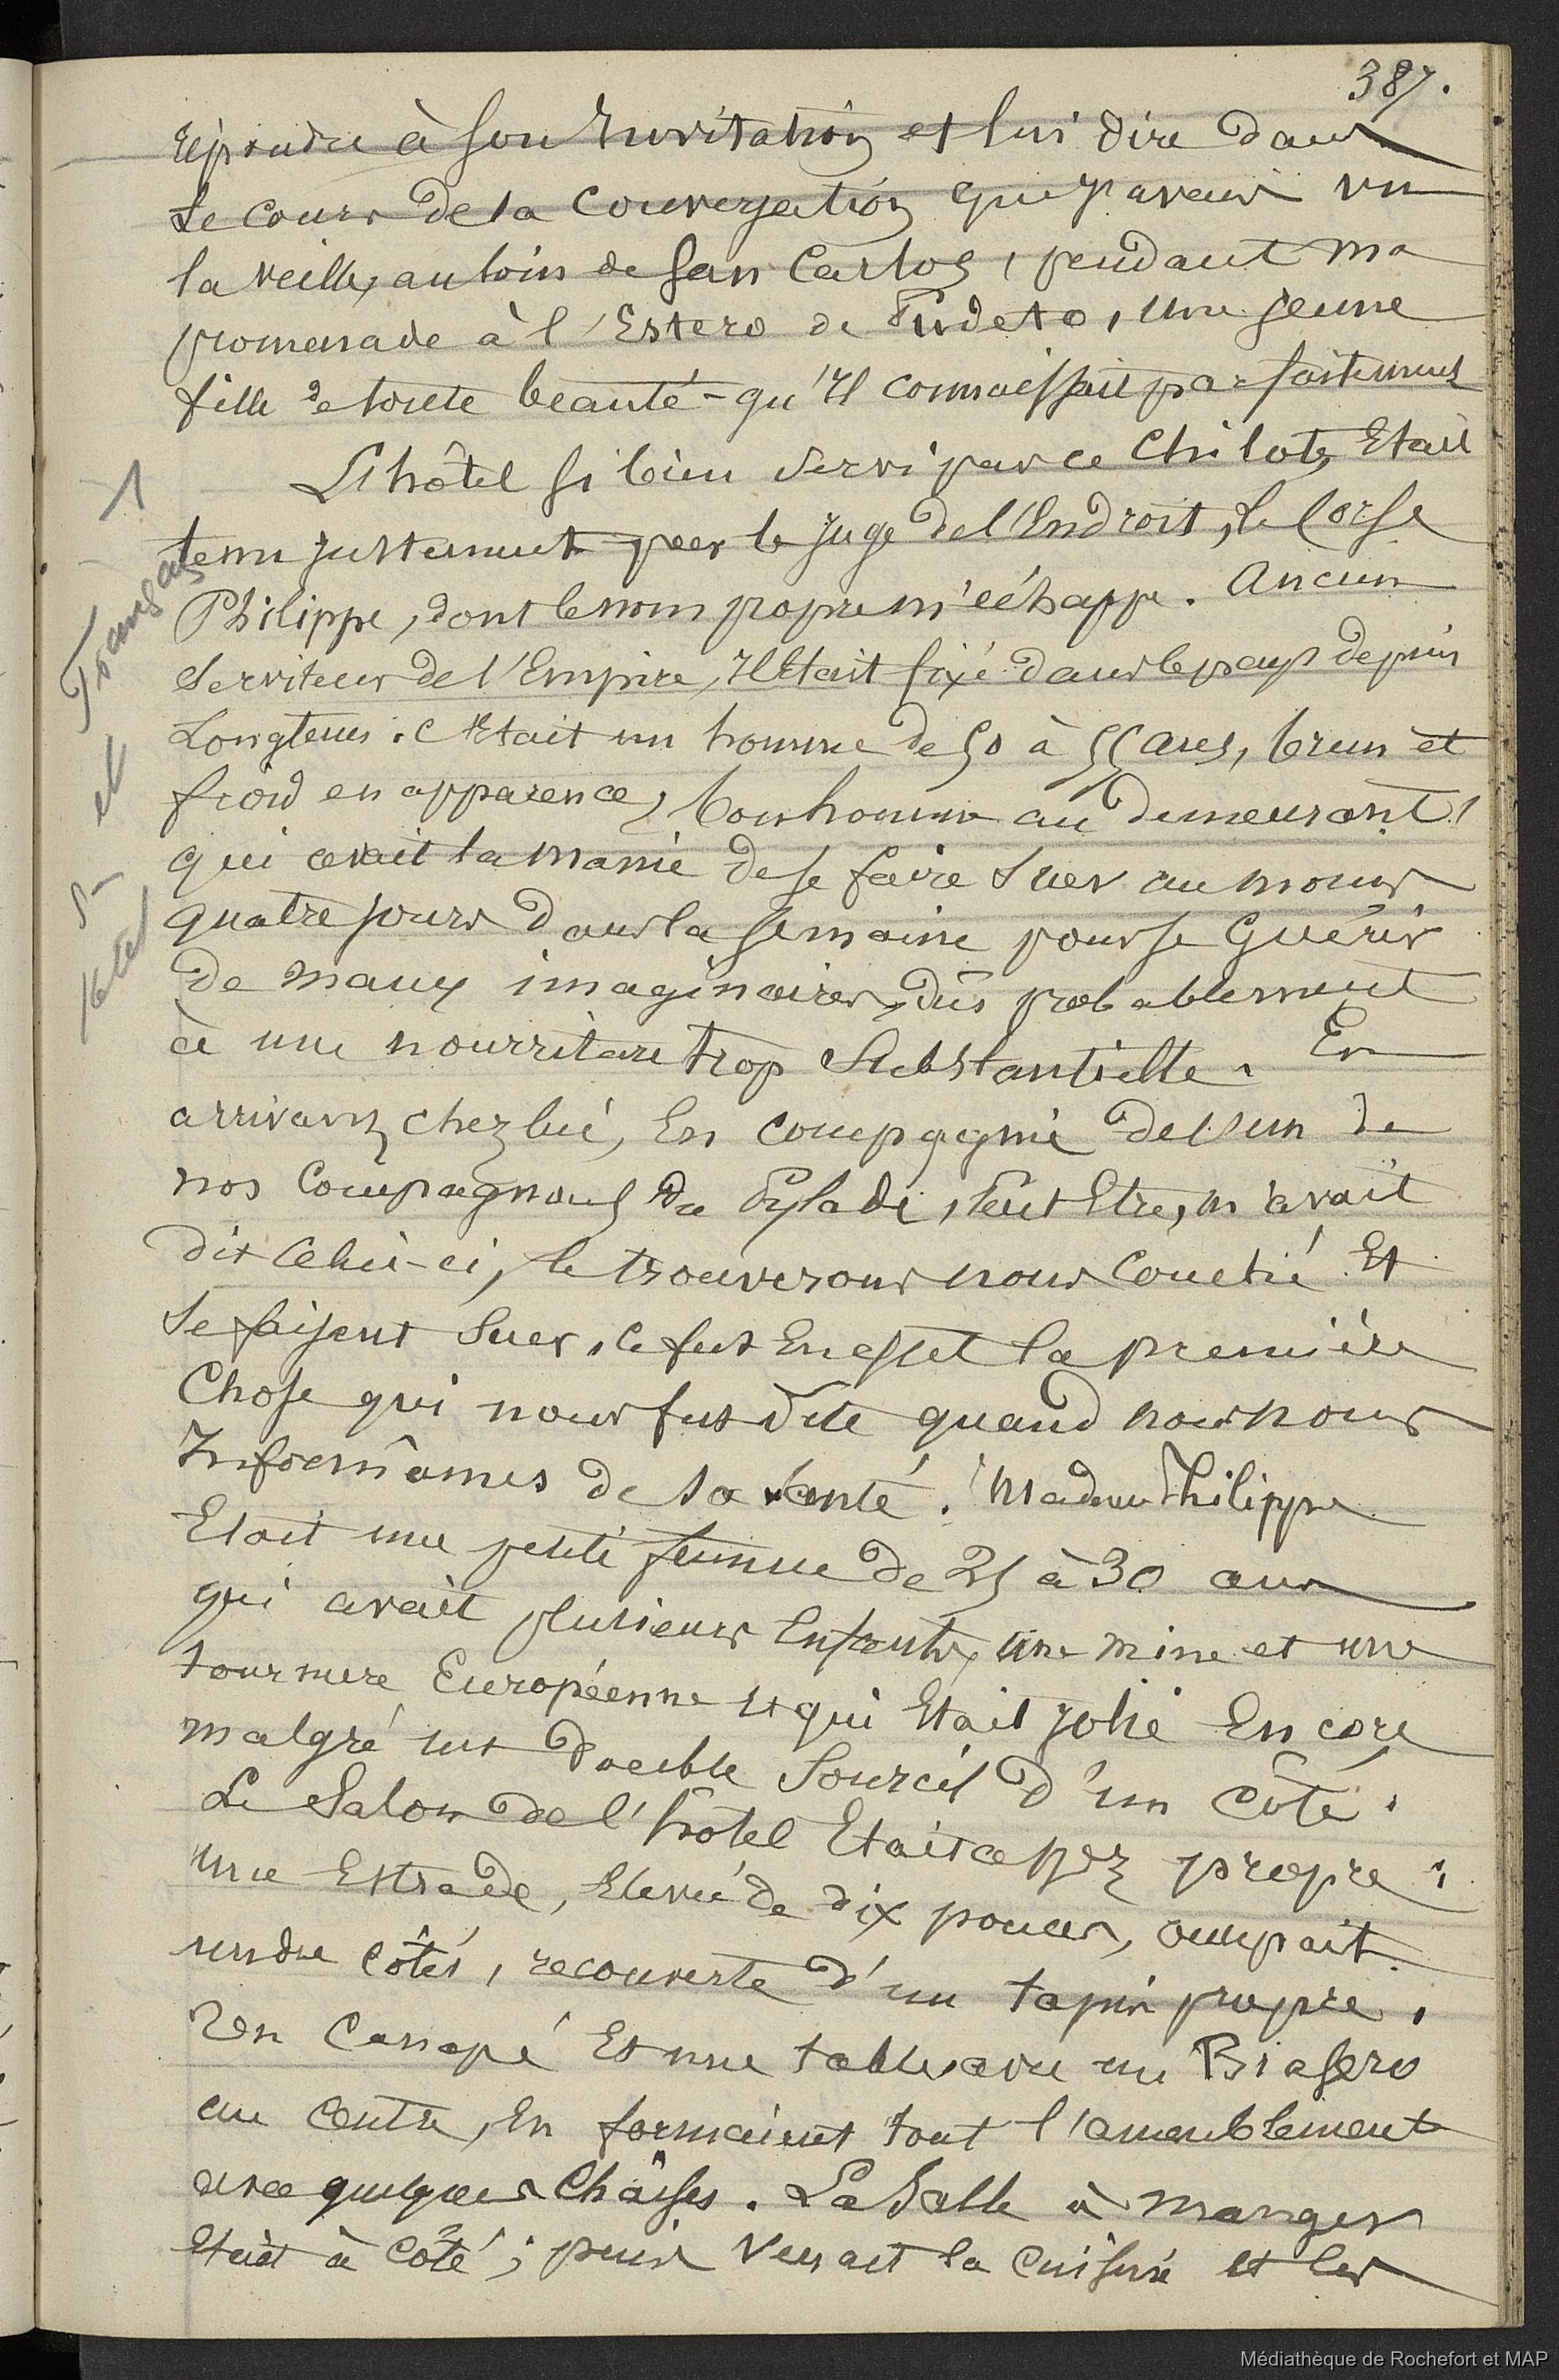 387.
répondre à son Invitation et lui dire dans
le cours de la Conversation que j'avais vu
la veille, au loin de San Carlos, pendant ma
promenade à l'Estero de Pudeto, une jeune
fille de toute beauté - qu'Il connaissait parfaitement
L'hôtel si bien servi par ce Chilote, Etait
tenu justement par le juge de l'Endroit, le Corse
Philippe, dont le nom propre m'échappe. Ancien
Serviteur de l'Empire, Il Etait fixé dans le pays depuis
Longtems. C'Etait un homme de 50 à 55 ans, brun et
froid en apparence, bonhomme au demeurant,
qui avait la manie de se faire suer au moins
quatre jours dans la semaine pour se Guérir
de maux imaginaires, dûs probablement
à une nourriture trop Substantielle. En
arrivant chez lui, En compagnie de l'un de
nos Compagnons du Pylade, Peut Etre, m'avait
dit Celui-ci, le trouverons nous Couché Et
se faisant Suer, ce fut En effet la première
Chose qui nous fut dite quand nous nous
Informâmes de sa santé. Madame Philippe
Etait une petite femme de 25 à 30 ans
qui avait plusieurs Enfants, une mine et une
tournure Européenne Et qui Etait jolie Encore
malgré un double Sourcil d'un Côté.
Le Salon de l'hôtel Etait assez propre;
une Estrade, Elevée de dix pouces, occupait
un des côtés, recouverte d'un tapis propre.
Un Canapé Et une table, avec un Brasero
au centre, En formaient tout l'ameublement
avec quelques Chaises. La Salle à manger
Etait à Côté; puis Venait la Cuisine et les
1
Français
et
hôtel
Médiathèque de Rochefort et MAP